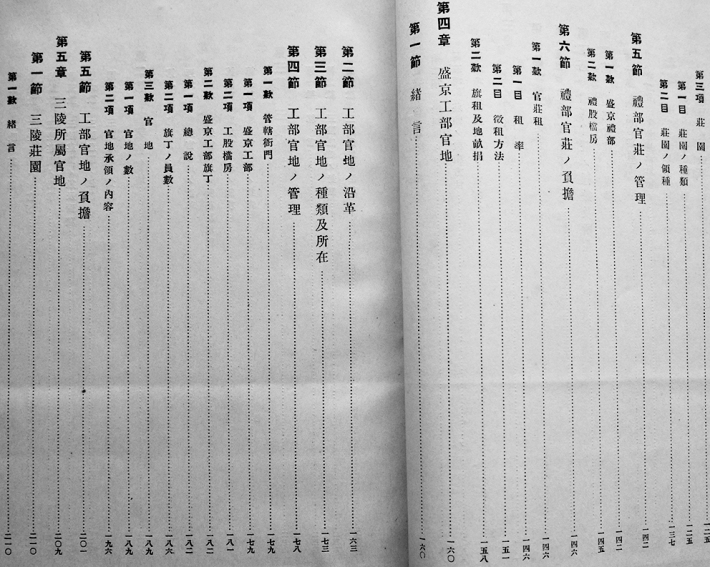 第三項 莊園 一二五
第一目 莊園ノ種類 一二五
第二目 莊園ノ領種 一三七
第五節 禮部官莊ノ管理 一四二
第一款 盛京禮部 一四二
第二款 禮股檔房 一四五
第六節 禮部官莊ノ負擔 一四六
第一款 官莊租 一四六
第一目 租率 一四六
第二目 徵租方法 一五一
第二款 旗租及地畝捐 一五八
第四章 盛京工部官地 一六〇
第一節 緒言 一六〇
第二節 工部官地ノ沿革 一六三
第三節 工部官地ノ種類及所在 一七三
第四節 工部官地ノ管理 一七八
第一款 管轄衙門 一七九
第一項 盛京工部 一七九
第二項 工股檔房 一八一
第二款 盛京工部旗丁 一八二
第一項 總說 一八二
第二項 旗丁ノ員數 一八六
第三款 官地 一八九
第一項 官地ノ數 一八九
第二項 官地承領ノ內容 一九六
第五節 工部官地ノ負擔 二〇一
第五章 三陵所屬官地 二〇九
第一節 三陵莊園 二一〇
第一款 緒言 二一〇